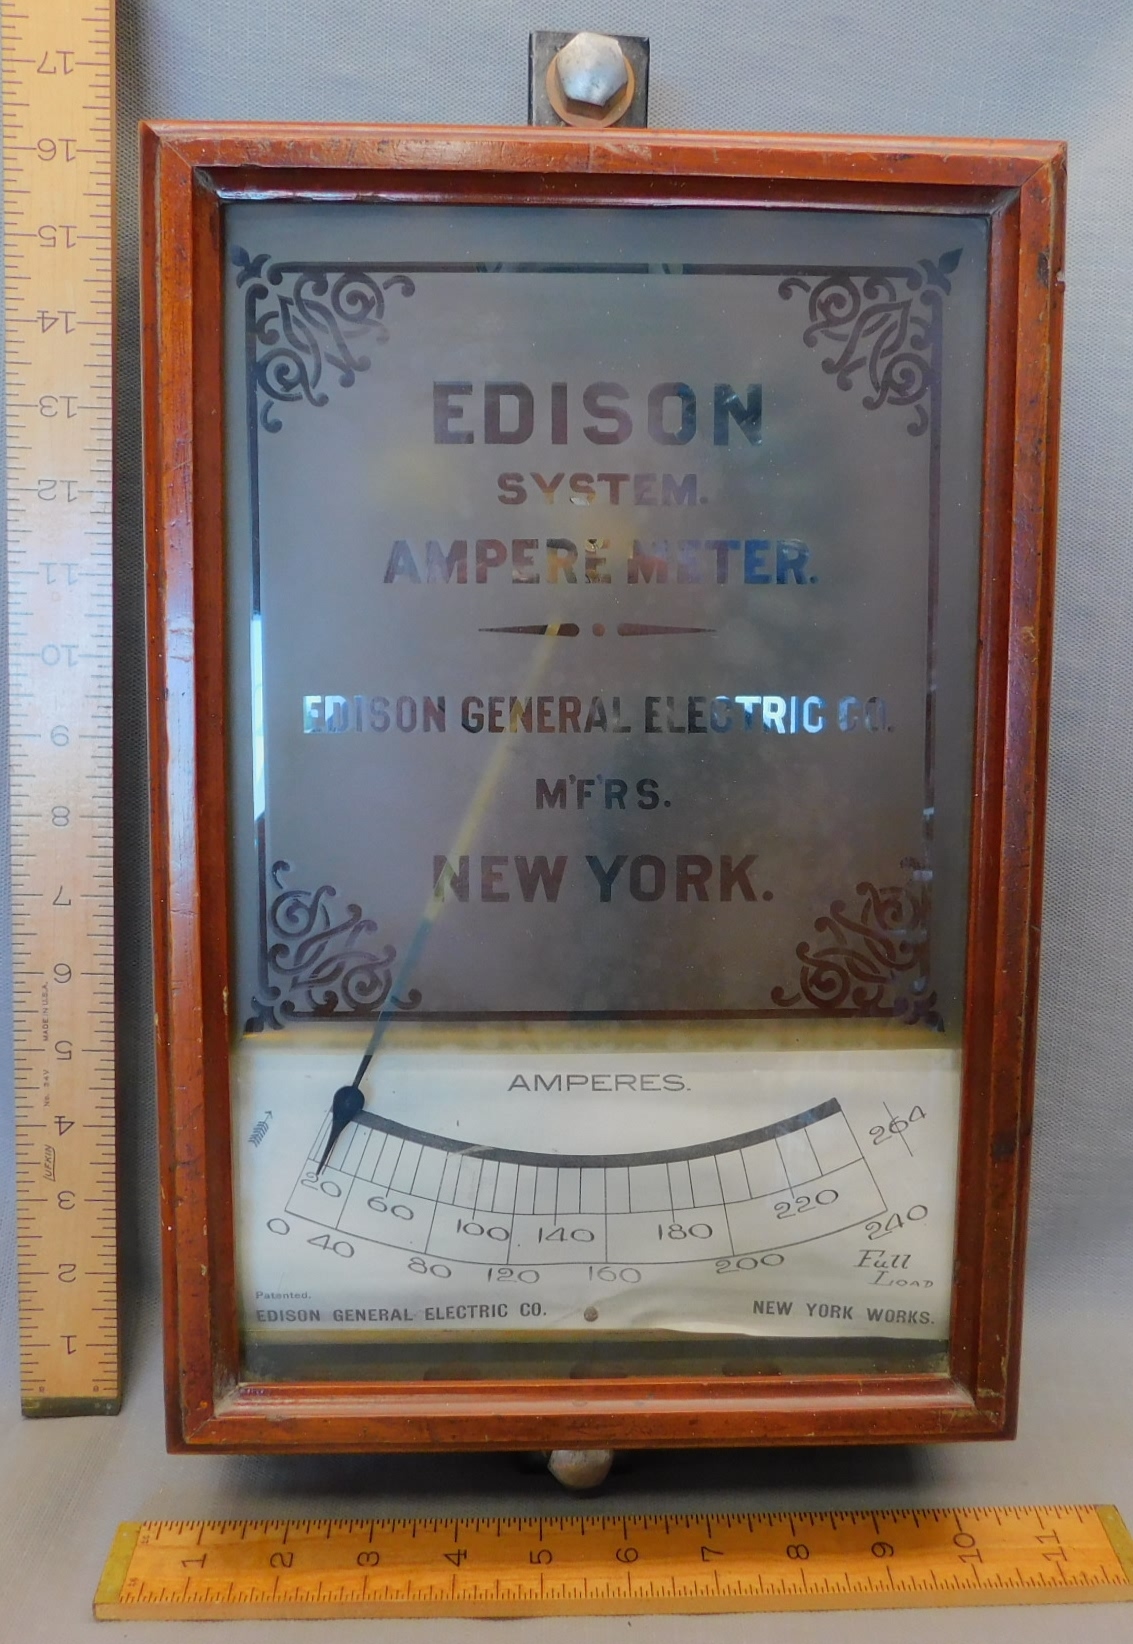 EDISON
SYSTEM.
AMPERE METER.
EDISON GENERAL ELECTRIC CO.
M'F'RS.
NEW YORK.
AMPERES.
0 20 40 60 80 100 120 140 160 180 200 220 240 264
Full
LOAD
Patented.
EDISON GENERAL ELECTRIC CO.
NEW YORK WORKS.
17
16
15
14
13
12
11
10
9
8
7
6
5
4
3
2
1
MADE IN U.S.A.
LUFKIN
1 2 3 4 5 6 7 8 9 10 11